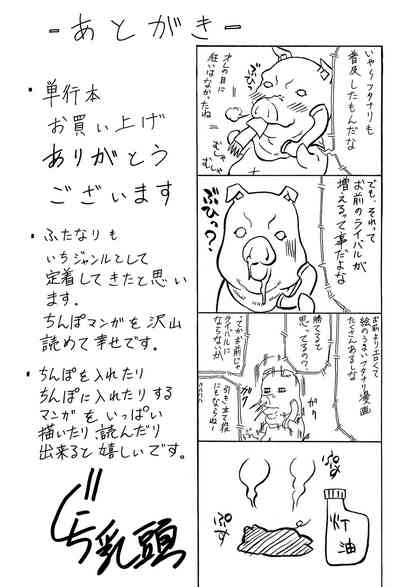 -あとがき-
・単行本
お買い上げ
ありがとう
ございます
・ふたなりも
いちジャンルとして
定着してきたと思い
ます。
ちんぽマンガを沢山
読めて幸せです。
・ちんぽを入れたり
ちんぽに入れたりする
マンガをいっぱい
描いたり、読んだり
出来ると嬉しいです。
ぐち乳頭
いやーフタナリも
普及したもんだな
オレの目に
狂いはなかったね
むしゃ
むしゃ
でも、それって
お前のライバルが
増えるって事だよな
ぶひっ?
お前よりエロくて
絵のうまいフタナリ漫画
たくさんあるしな
勝てると
思ってるの?
ってかお前じゃ
ライバルに
ならないか
引き立て役
にもならねー
ガク
ガク
ぷす
ぷす
灯
油